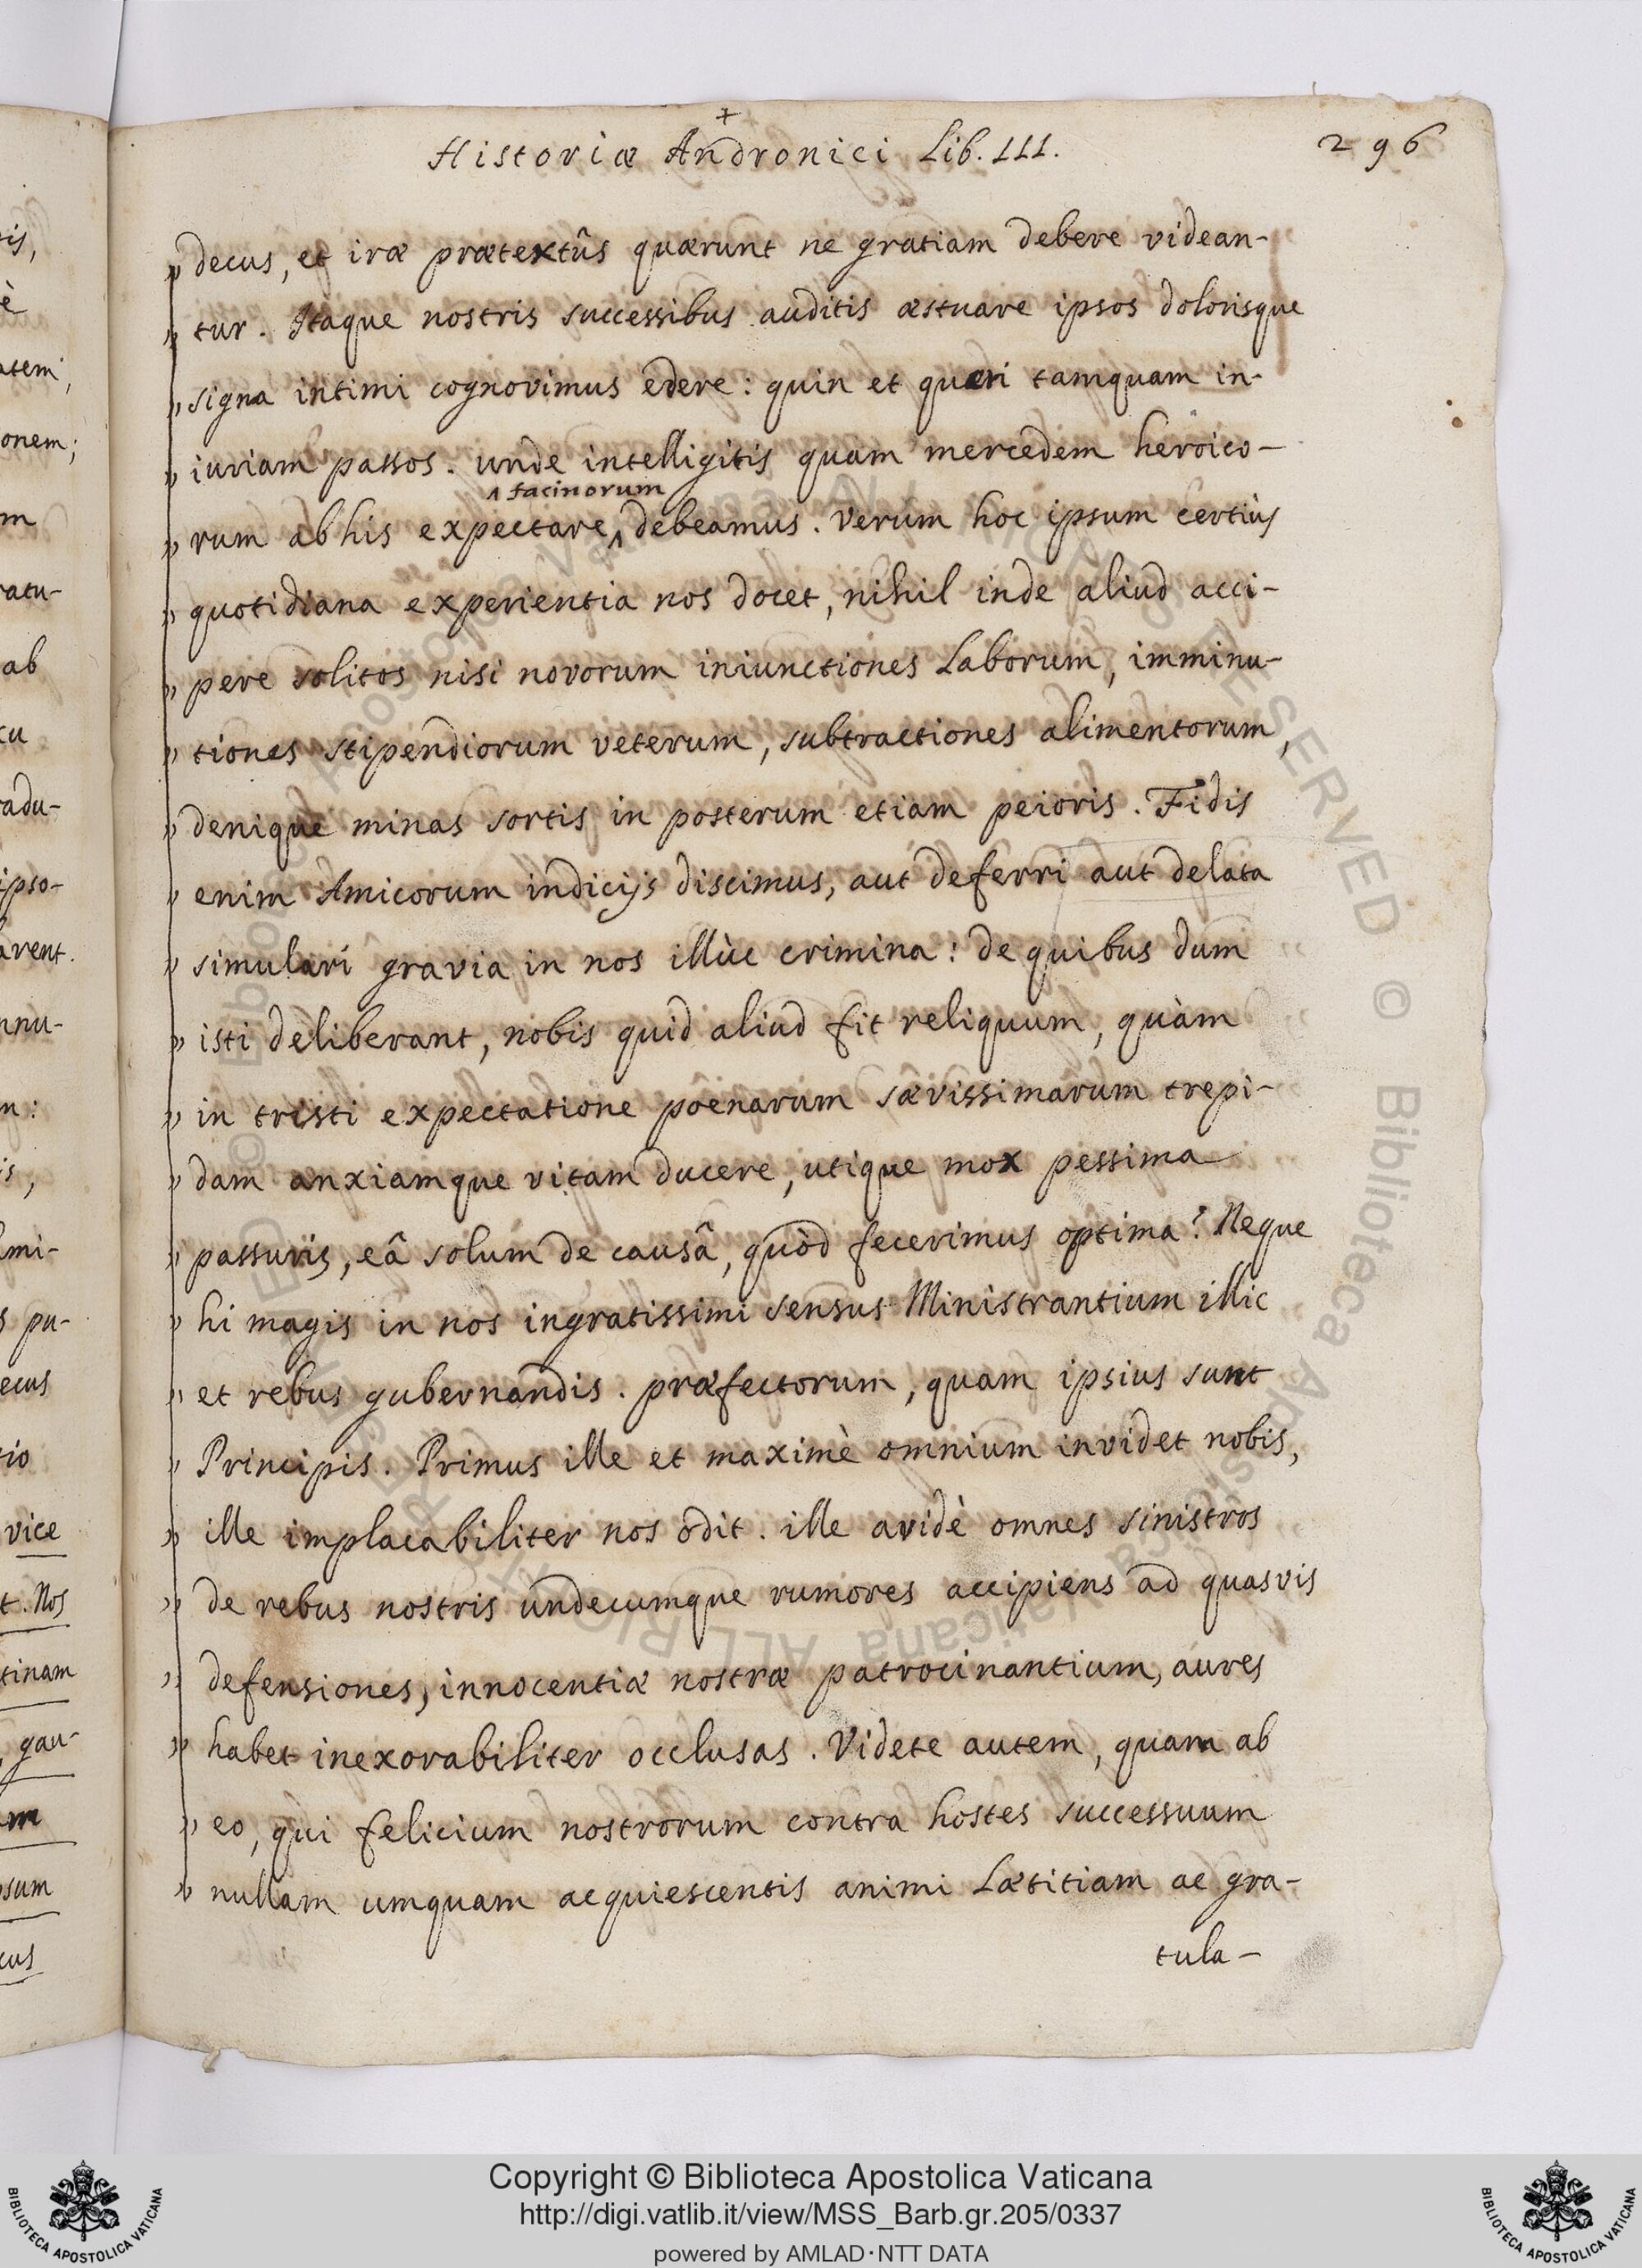 Historiæ Andronici Lib. III.
296
decus, et iræ prætextûs quærunt ne gratiam debere videan-
tur. Itaque nostris successibus auditis æstuare ipsos dolorisque
signa intimi cognovimus edere: quin et quæri tamquam in-
iuriam passos. unde intelligitis quam mercedem heroico-
^ facinorum
rum ab his expectare ^ debeamus. Verum hoc ipsum certiùs
quotidiana experientia nos docet, nihil inde aliud acci-
pere solitos nisi novorum iniunctiones Laborum, imminu-
tiones stipendiorum veterum, subtractiones alimentorum,
denique minas sortis in posterum etiam peioris. Fidis
enim Amicorum indicijs discimus, aut deferri aut delata
simulari gravia in nos illùc crimina: de quibus dum
isti deliberant, nobis quid aliud fit reliquum, quàm
in tristi expectatione poenarum sævissimarum trepi-
dam anxiamque vitam ducere, utique mox pessima
passuris, eâ solum de causâ, quòd fecerimus optima? Neque
hi magis in nos ingratissimi sensus Ministrantium illic
et rebus gubernandis. præfectorum, quam ipsius sunt
Principis. Primus ille et maximè omnium invidet nobis,
ille implacabiliter nos odit. ille avidè omnes sinistros
de rebus nostris undecumque rumores accipiens ad quasvis
defensiones, innocentiæ nostræ patrocinantium, aures
habet inexorabiliter occlusas. Videte autem, quam ab
eo, qui felicium nostrorum contra hostes successuum
nullam umquam acquiescentis animi Lætitiam ac gra-
tula-
Copyright © Biblioteca Apostolica Vaticana
http://digi.vatlib.it/view/MSS_Barb.gr.205/0337
powered by AMLAD·NTT DATA
BIBLIOTECA APOSTOLICA VATICANA
BIBLIOTECA APOSTOLICA VATICANA